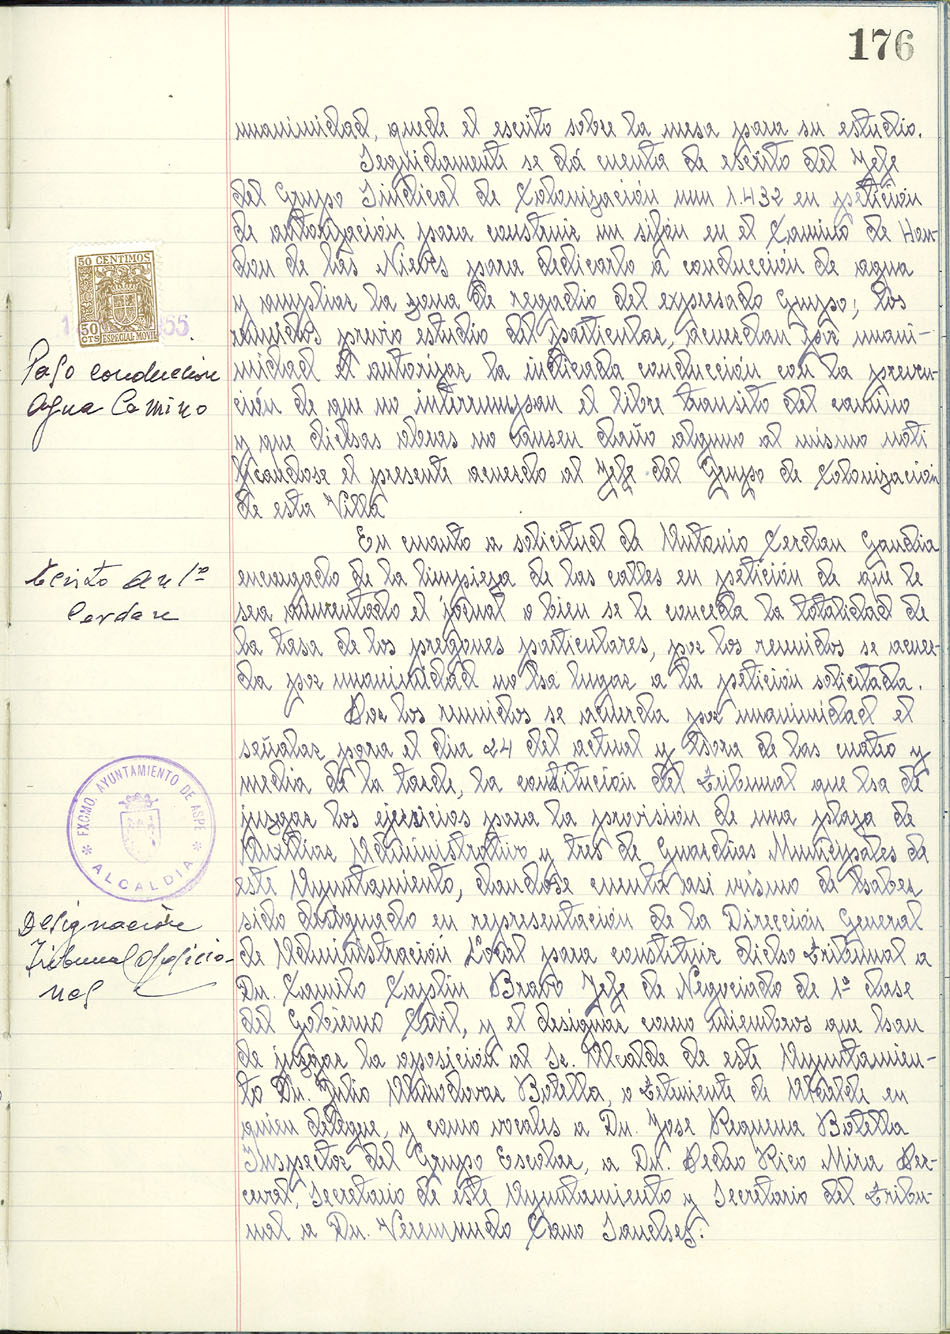 176
unanimidad, quede el escrito sobre la mesa para su estudio.
Seguidamente se dá cuenta de escrito del Jefe
del Grupo Sindical de Colonización num 1.432 en petición
de autorización para construir un sifón en el Camino de Hon-
don de las Nieves para dedicarlo a conducción de agua
y ampliar la zona de regadio del expresado Grupo; los
reunidos previo estudio del particular, acuerdan por unani-
midad el autorizar la indicada conducción con la preven-
ción de que no interrumpan el libre transito del camino
y que dichas obras no causen daño alguno al mismo noti
ficandose el presente acuerdo al Jefe del Grupo de Colonización
de esta Villa
En cuanto a solicitud de Antonio Cerdan Gandia
encargado de la limpieza de las calles en petición de que le
sea aumentado el jornal o bien se le conceda la totalidad de
la tasa de los pregones particulares, por los reunidos se acuer-
da por unanimidad no ha lugar a la petición solicitada.
Por los reunidos se acuerda por unanimidad el
señalar para el dia 24 del actual y hora de las cuatro y
media de la tarde, la constitución del tribunal que ha de
juzgar los ejercicios para la provisión de una plaza de
Auxiliar Administrativo y tres de Guardias Municipales de
este Ayuntamiento, dandose cuenta asi mismo de haber
sido designado en representación de la Dirección General
de Administración Local para constituir dicho tribunal a
Dn. Camilo Bravo Jefe de Negociado de 1ª clase
del Gobierno Civil, y el designar como miembros que han
de juzgar la oposición al Sr. Alcalde de este Ayuntamien-
to Dn. Julio Almodovar Botella, o teniente de Alcalde en
quien delegue, y como vocales a Dn. Jose Requena Botella
Inspector del Grupo Escolar, a Dn. Pedro Rico Mira Per-
ceval, Secretario de este Ayuntamiento y Secretario del tribu-
nal a Dn. Veremundo Cano Sanchez.
50 CENTIMOS
50
CTS
ESPECIAL MOVIL
55
Paso conduccion
Agua Camino
Escrito Anº
Cerdan
EXCMO. AYUNTAMIENTO DE ASPE
ALCALDIA
Designación
Tribunal Oposicio-
nes